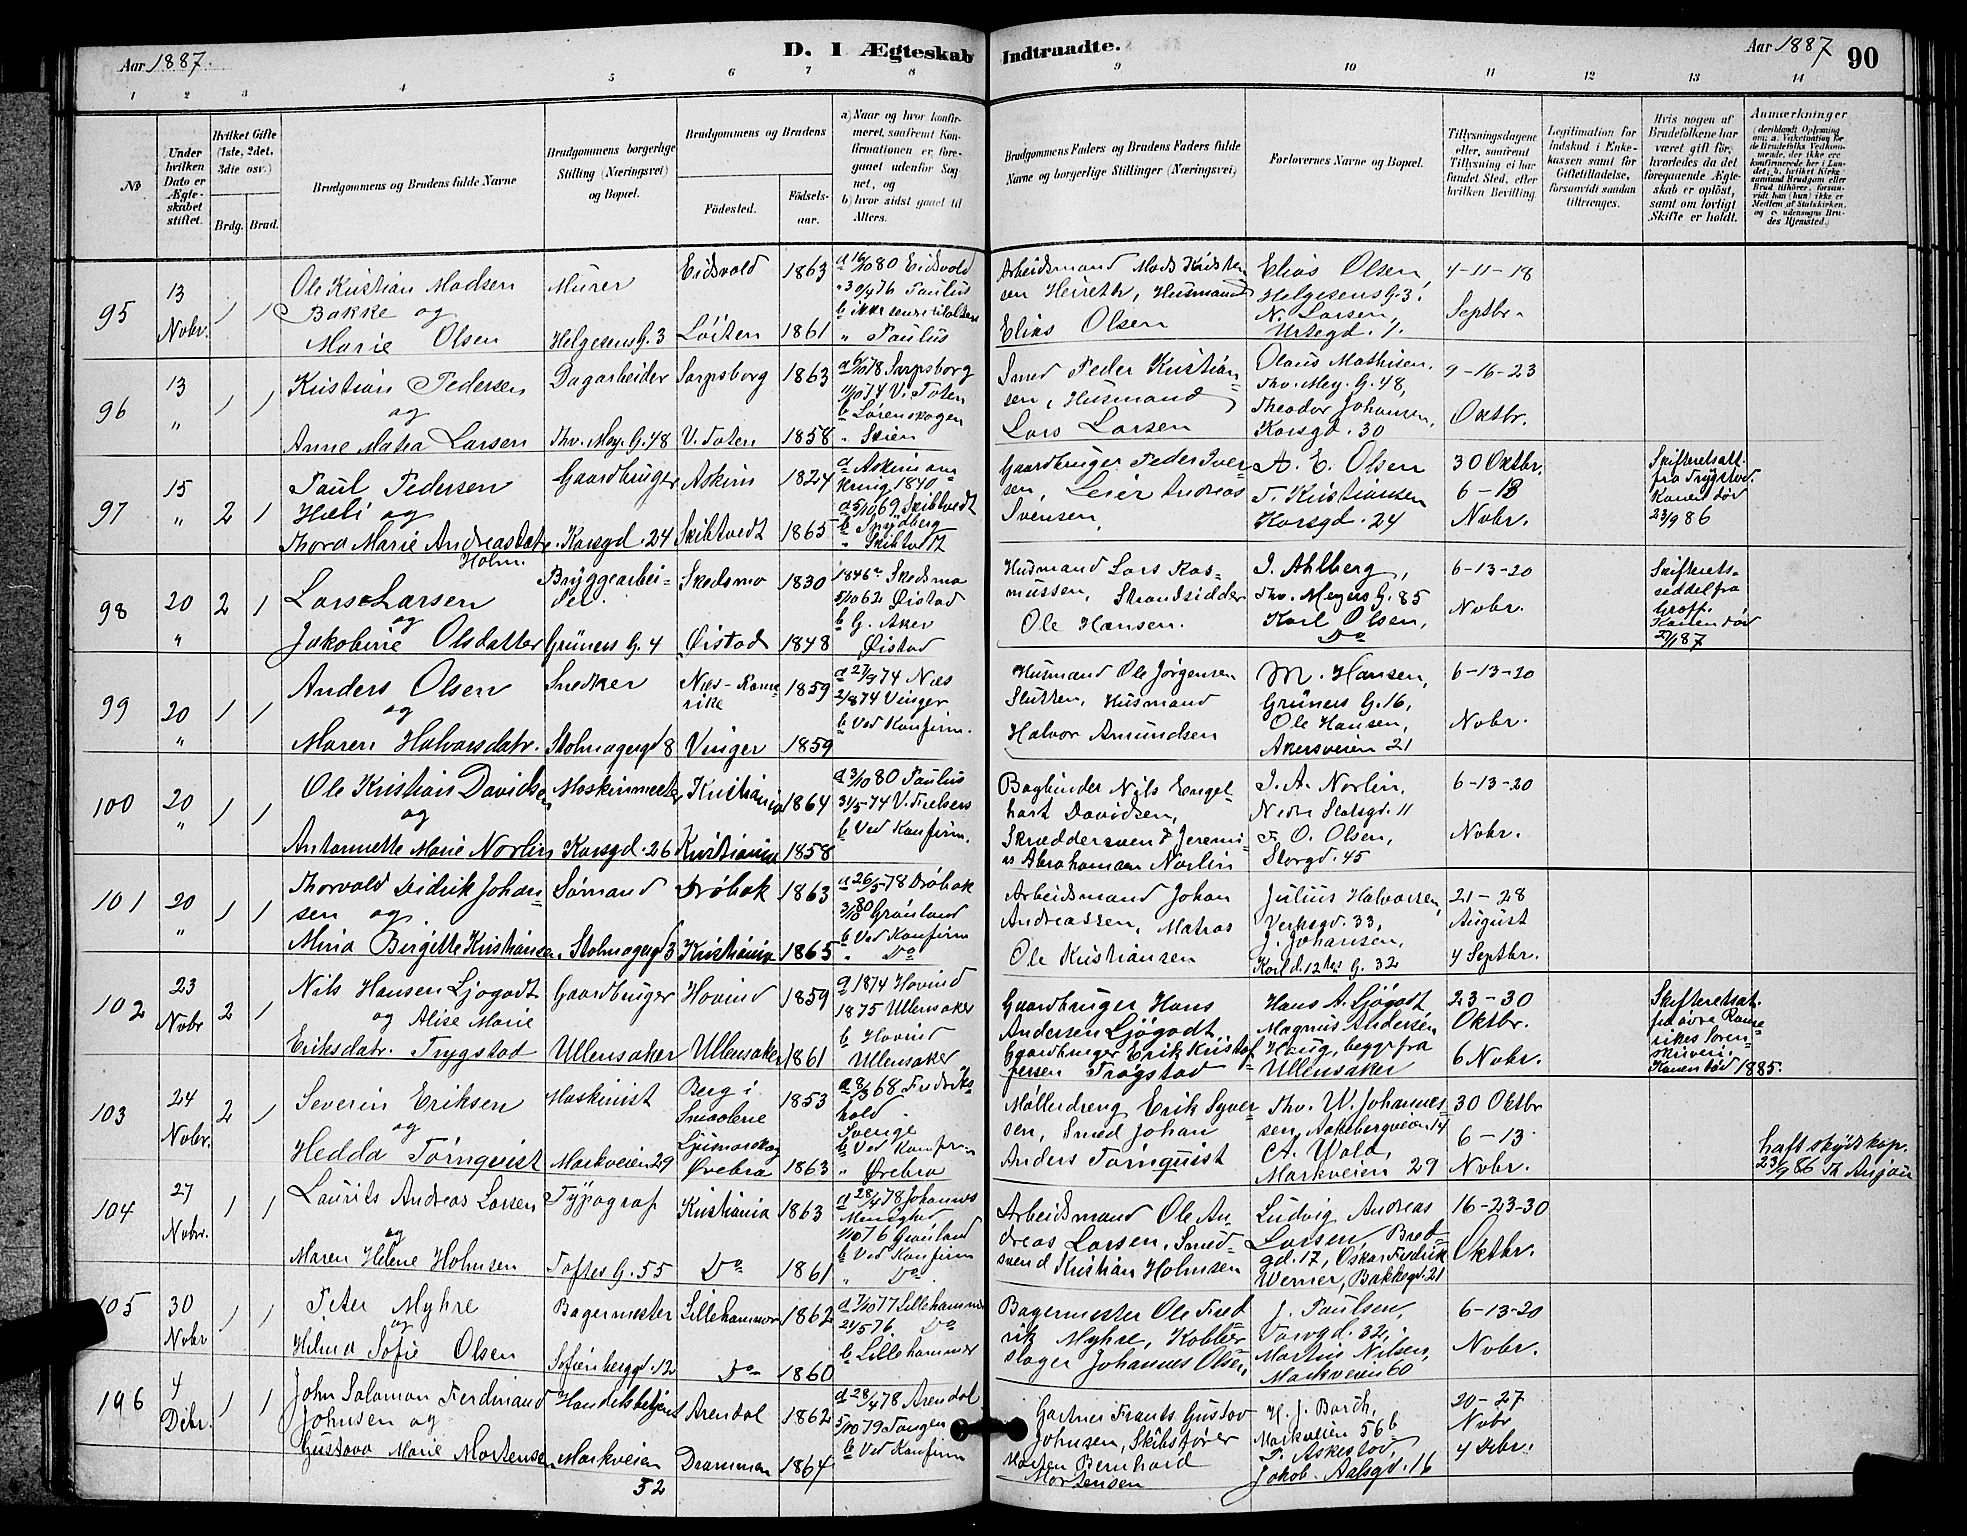 Aar 1887.
D. I Ægteskab Indtraadte.
Aar 1887
90
1 2 3 4 5 6 7 8 9 10 11 12 13 14
No
Under hvilken Dato er Ægteskabet stiftet.
Hvilket Gifte (1ste, 2det, 3die osv.)
Brdg. Brud.
Brudgommens og Brudens fulde Navne
Brudgommens borgerlige Stilling (Næringsvei) og Bopæl.
Brudgommens og Brudens
Fødested.
Fødselsaar.
a) Naar og hvor konfirmeret, saafremt Konfirmationen er foregaaet udenfor Sognet, og
b) hvor sidst gaaet til Alters.
Brudgommens Faders og Brudens Faders fulde Navne og borgerlige Stillinger (Næringsvei)
Forlovernes Navne og Bopæl.
Tillysningsdagene eller, saafremt Tillysning ei har fundet Sted, efter hvilken Bevilling
Legitimation for Indskud i Enkekassen samt for Giftetilladelse, forsaavidt saadan tiltrænges.
Hvis nogen af Brudefolkene har været gift før, hvorledes da det foregaaende Ægteskab er opløst, samt om lovligt Skifte er holdt.
Anmærkninger
95
13 Nobr.
1 1
Ole Kristian Madsen
Bakke og
Marie Olsen
Murer
Helgesens G. 3
Eidsvold 1863
Løiten 1861
a 16/10 80 Eidsvold
" Paulus
Arbeidsmand Mads Kristen
sen Heireth, Husmand
Elias Olsen
Elias Olsen,
Helgesens G. 3.
N. Larsen,
Urtegd. 7.
4-11-18
Septbr.
96
13 "
1 1
Kristian Pedersen
og
Anne Matea Larsen
Dagarbeider
Thv. Mey. G. 48
Sarpsborg 1863
V. Toten 1858
a 6/10 78 Sarpsborg
11/10 74 V. Toten
b Lørenskogen
" Skien
Smed Peder Kristian-
sen, Husmand
Lars Larsen
Olaus Mathisen,
Thv. Mey. G. 48,
Theodor Johansen,
Korsgd. 30
9-16-23
Oktbr.
97
15 "
2 1
Paul Pedersen
Hæli og
Thora Marie Andreasdatr.
Holm.
Gaardbruger
Korsgd. 24
Askim 1824
Skibtvedt 1865
a Askim om-
kring 1840
a 5/10 69 Skibtvedt
b Spydberg
" Skibtvedt
Gaardbruger Peder Iver-
sen, Leier Andreas
Svensen,
A. E. Olsen
T. Kristiansen
Korsgd. 24
30 Oktbr.
6-13
Nobr.
Skifteretsatt.
fra Trygstad.
Konen død
23/9 86
98
20 "
2 1
Lars Larsen
og
Jakobine Olsdatter
Bryggearbei-
der.
Grüners G. 4
Skedsmo 1830
Øistad 1848
1846 Skedsmo
5/10 62 Øistad
b G. Aker
Øistad
Husmand Lars Ras-
mussen, Strandsidder
Ole Hansen.
I. Ahlberg,
Thv. Meyers G. 85
Karl Olsen,
Do
6-13-20
Nobr.
Skifterets-
seddel fra
Konen død
99
20 "
1 1
Anders Olsen
og
Maren Halvorsdatr.
Snedker
Stolmagergd 8
Næs-Rome-
rike 1859
Vinger 1859
a 27/9 74 Næs
2/8 74 Vinger
b Ved Konfirm.
Husmand Ole Jørgensen
Slutten, Husmand
Halvor Amundsen
M. Hansen,
Grüners G. 16,
Ole Hansen,
Akersveien 21
6-13-20
Nobr.
100
20 "
1 1
Ole Kristian Davidsen
og
Antonnette Marie Norlin
Maskinmester
Korsgd. 26
Kristiania 1864
Kristiania 1858
a 3/10 80 Paulus
31/5 74 V. Frelsers
b Ved Konfirm.
Bogbinder Nils Engel-
hart Davidsen,
Skræddersvend Jeremi-
as Abrahamsen Norlin
I. A. Norlin,
Nedre Slotsgd. 11
F. O. Olsen,
Storgd. 45
6-13-20
Nobr.
101
20 "
1 1
Thorvald Didrik Johan-
sen og
Mina Bergitte Kristiansen,
Sømand
Stolmagergd 3
Drøbak 1863
Kristiania 1865
a 26/5 78 Drøbak
3/10 80 Grønland
b Ved Konfirm
" Do
Arbeidsmand Johan
Andreassen, Matros
Ole Kristiansen
Julius Halvorsen,
Verksgd. 33,
J. Johansen,
Karl d. 12tes G. 32
21-28
August
4 Septbr.
102
23 Nobr
2 1
Nils Hansen Ljøgodt
og Alise Marie
Eriksdatr. Trygstad
Gaardbruger
Ullensaker
Hovind 1859
Ullensaker 1861
a 1874 Hovind
1875 Ullensaker
b Hovind
Ullensaker
Gaardbruger Hans
Andersen Ljøgodt,
Gaardbruger Erik Kristof
fersen Trøgstad
Hans A. Ljøgodt
Magnus Andersen
Haug, begge fra
Ullensaker
23-30
Oktbr.
6 Nobr.
Skifteretsat.
fra øvre Rome-
rikes Soren-
skriveri.
Konen død 1885.
103
24 Nobr.
2 1
Severin Eriksen
og
Hedda Törnquist
Maskinist
Markveien 29
Berg i
Smaalene 1853
Øvebro 1863
a 8/3 68 Fredriks-
hald
Sverige
b Ved Konfirm
" Ørebro
Møllerdreng Erik Syver-
sen, Smed Johan
Anders Törnquist
Thv. W. Johannes-
sen, Aakebergveien 14
A. Wold,
Markveien 29
30 Oktbr
6-13
Nobr.
haft skydtskop.
104
27 Nobr.
1 1
Laurits Andreas Larsen
og
Maren Helene Holmsen
Typograf
Toftes G. 55
Kristiania 1863
Do 1861
a 28/4 78 Johannes
Menighed
1/10 76 Grønland
b Ved Konfirm
" Do
Arbeidsmand Ole An-
dreas Larsen, Smed-
svend Kristian Holmsen
Ludvig Andreas
Larsen, Bred-
gd. 17, Oskar Fredrik
Werner, Bakkegd. 21
16-23-30
Oktbr.
105
30 Nobr
1 1
Peter Myhre
og
Hilma Sofie Olsen
Bagermester
Sofienberggd. 12
Lillehammer 1862
Do 1860
a 7/10 77 Lillehammer
21/5 76 Do
b Lillehammer
Bagermester Ole Fred
rik Myhre, Kobber-
slager Johannes Olsen,
J. Paulsen,
Torvgd. 32,
Martin Nilsen,
Markveien 60
6-13-20
Nobr.
196
4 Debr.
1 1
John Salomon Ferdinand
Johnsen og
Gustava Marie Mortensen
Handelsbetjent
Markveien
52
Arendal 1862
Drammen 1864
a 28/4 78 Arendal
5/10 79 Tangen
b Ved Konfirm
Gartner Frants Gustav
Johnsen, Skibsfører
Morten Bernhard
Mortensen
H. J. Borch,
Markveien 56b
T. Askestad,
Jakob Aalsgd. 16
20-27
Nobr
4 Debr.